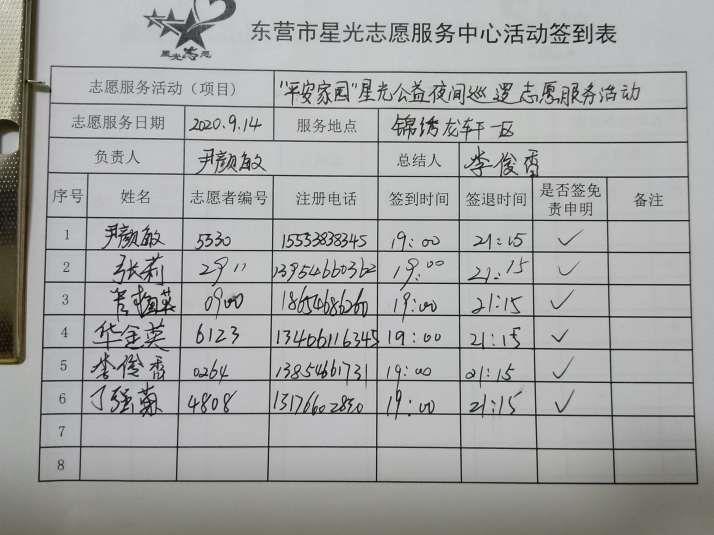 星光志愿
东营市星光志愿服务中心活动签到表
志愿服务活动（项目） "平安家园"星光公益夜间巡逻志愿服务活动
志愿服务日期 2020.9.14 服务地点 锦绣龙轩一区
负责人 尹颜敏 总结人 李俊香
序号 姓名 志愿者编号 注册电话 签到时间 签退时间 是否签免责申明 备注
1 尹颜敏 5330 15533838345 19:00 21:15 ✓
2 张莉 2911 13954660362 19:00 21:15 ✓
3 0900 18654686260 19:00 21:15 ✓
4 华金英 6123 13406116345 19:00 21:15 ✓
5 李俊香 0264 13854661731 19:00 21:15 ✓
6 丁强菊 4808 13176602830 19:00 21:15 ✓
7
8